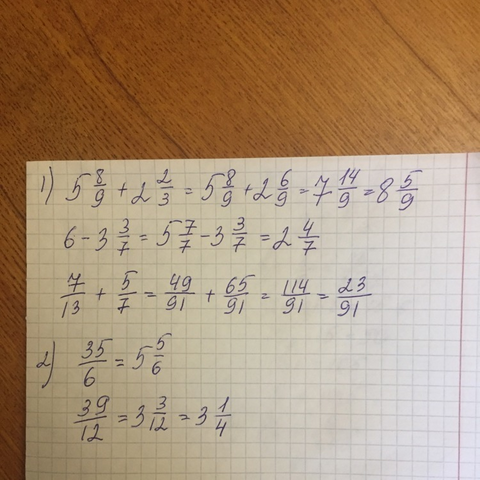 1) 5 8/9 + 2 2/3 = 5 8/9 + 2 6/9 = 7 14/9 = 8 5/9
6 - 3 3/7 = 5 7/7 - 3 3/7 = 2 4/7
7/13 + 5/7 = 49/91 + 65/91 = 114/91 = 23/91
2) 35/6 = 5 5/6
39/12 = 3 3/12 = 3 1/4